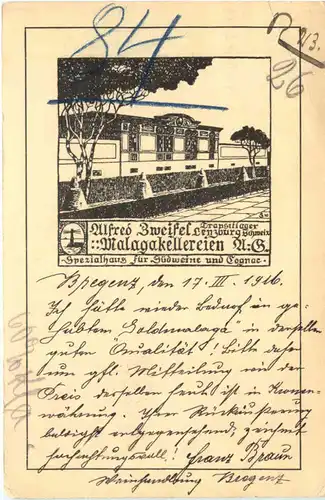 84
213.
26
Alfred Zweifel Transitlager
Lenzburg Schweiz
::Malagakellereien A:G.
Spezialhaus für Südweine und Cognac
Bregenz, den 17. III. 1916.
Ich hätte wieder Bedarf an ge-
"Goldmalaga" in derselben
guten Qualität! Bitte daher
um gfl. Mitteilung wie der
Preis desselben heut ist in Kronen-
währung. Ihrer Rückäusserung
entgegensehend, zeichnet
hochachtungsvoll! Franz Braun
Weinhandlung Bregenz